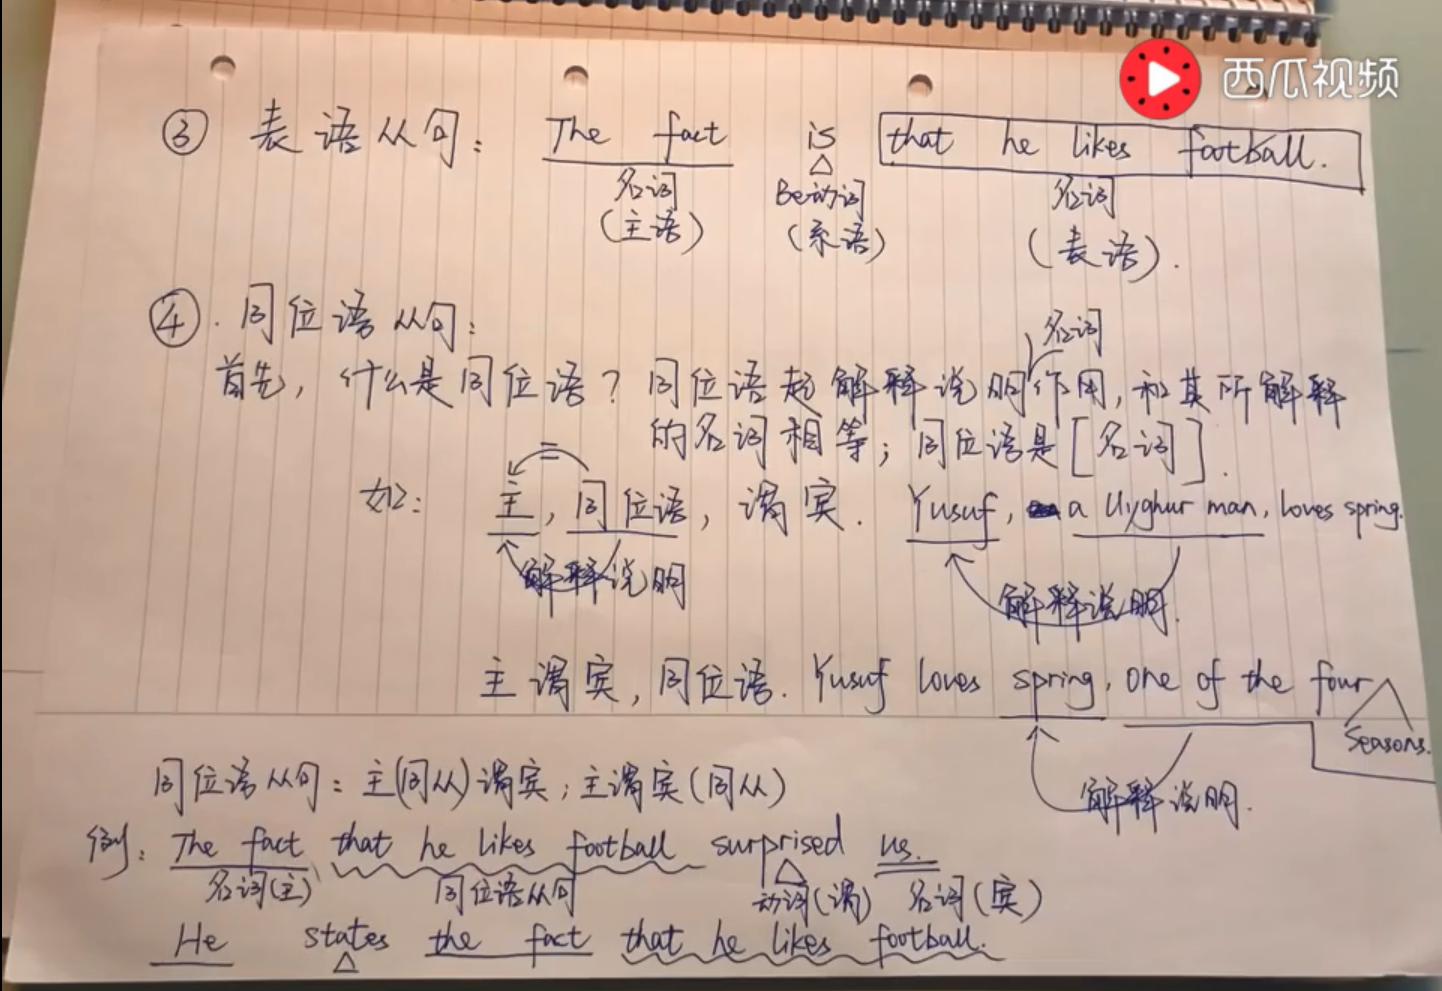 西瓜视频
③ 表语从句： The fact is that he likes football.
名词 Be动词 名词
(主语) (系语) (表语).
④. 同位语从句：
名词
首先，什么是同位语？同位语起解释说明作用，和其所解释
的名词相等；同位语是[名词].
=
如： 主，同位语，谓宾. Yusuf, a Uyghur man, loves spring.
解释说明 解释说明.
主谓宾，同位语. Yusuf loves spring, one of the four
seasons.
解释说明.
同位语从句：主(同从)谓宾；主谓宾(同从)
例： The fact that he likes football surprised us.
名词(主) 同位语从句 动词(谓) 名词(宾)
He states the fact that he likes football.